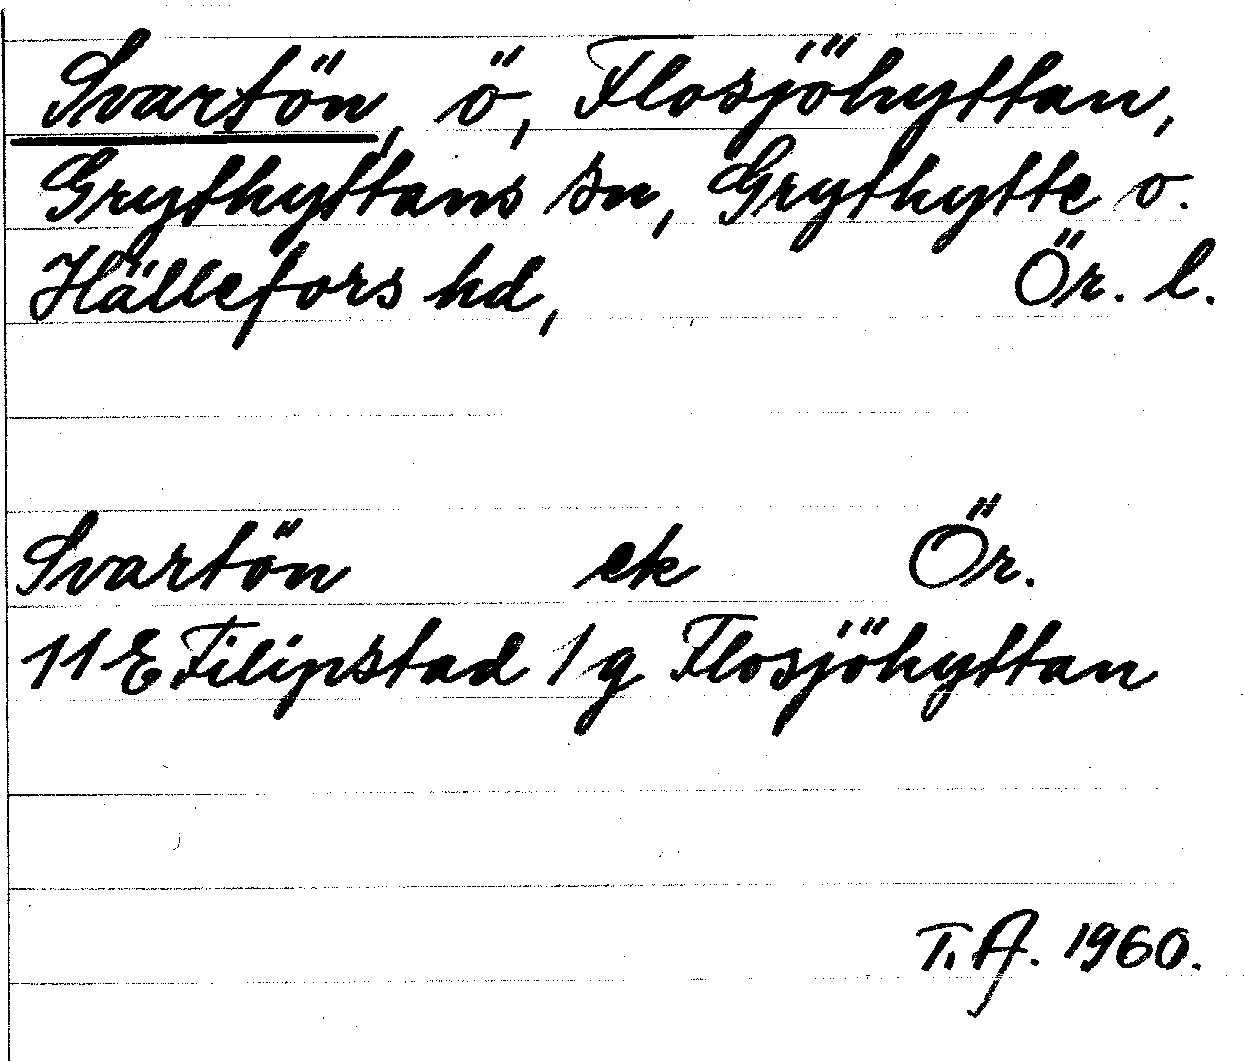 Svartön, ö, Flosjöhyttan,
Grythyttans sn, Grythytte o.
Hällefors hd, Ör. l.
Svartön ek Ör.
11E Filipstad 1g Flosjöhyttan
T.A. 1960.